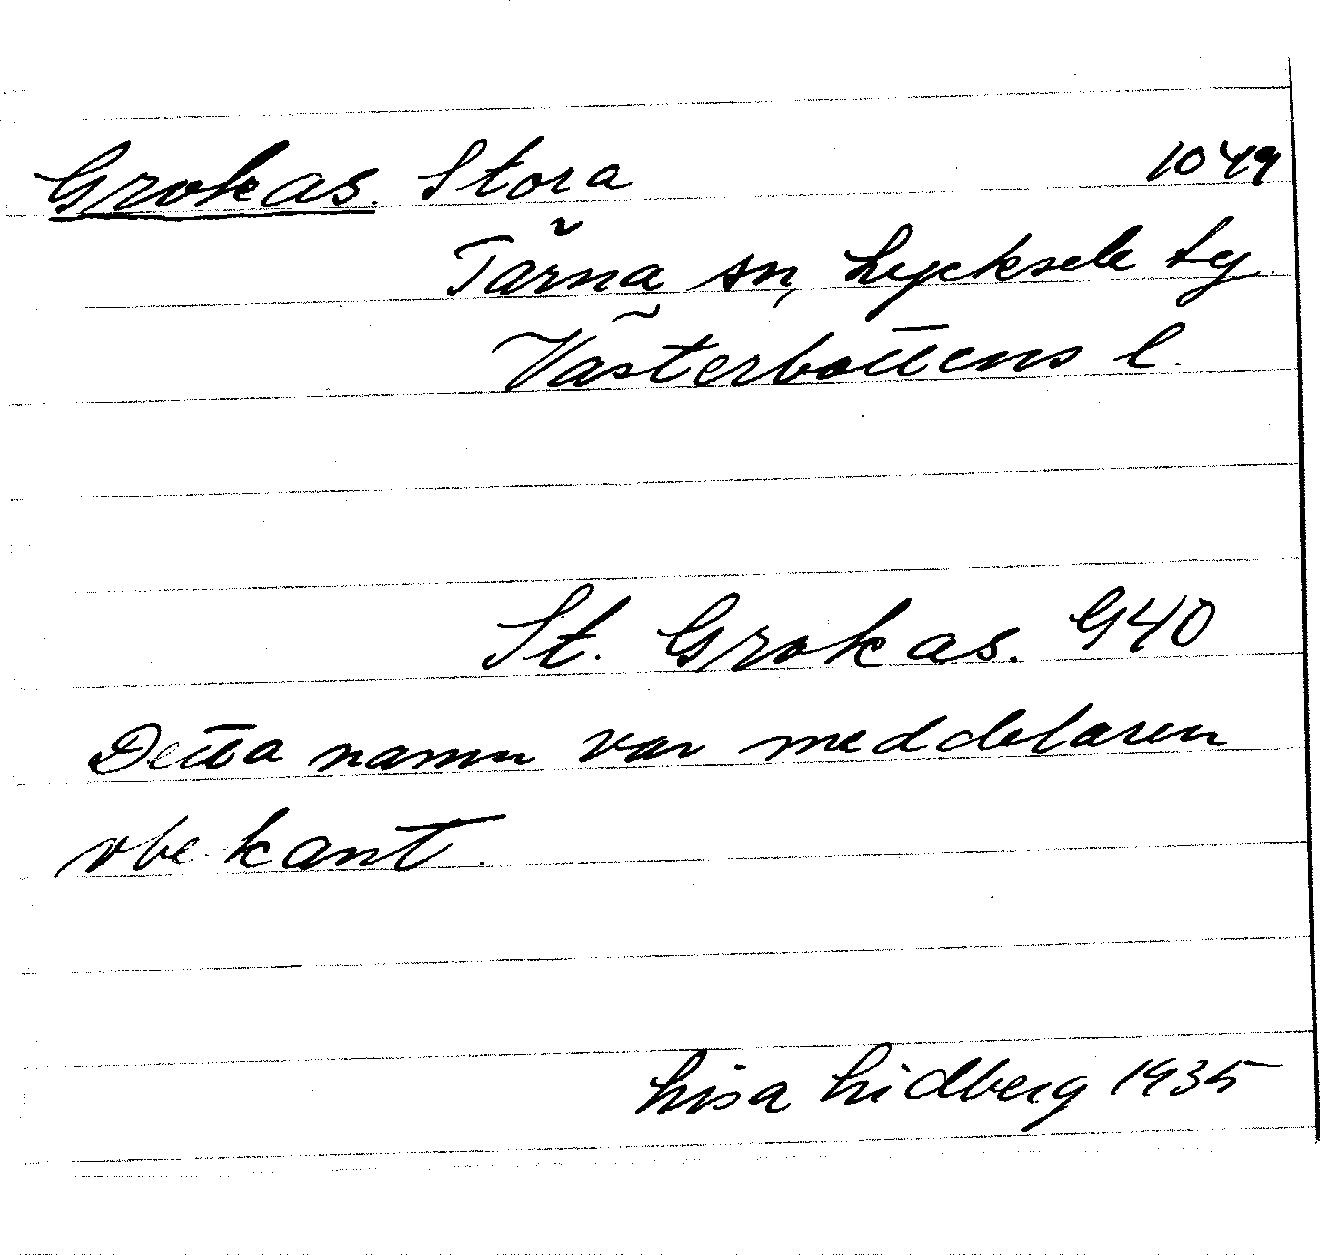 Grokas. Stora 1049
Tärna sn, Lycksele tg
Västerbottens l.
St. Grokas. G40
Detta namn var meddelaren
obekant.
Lisa Lidberg 1935